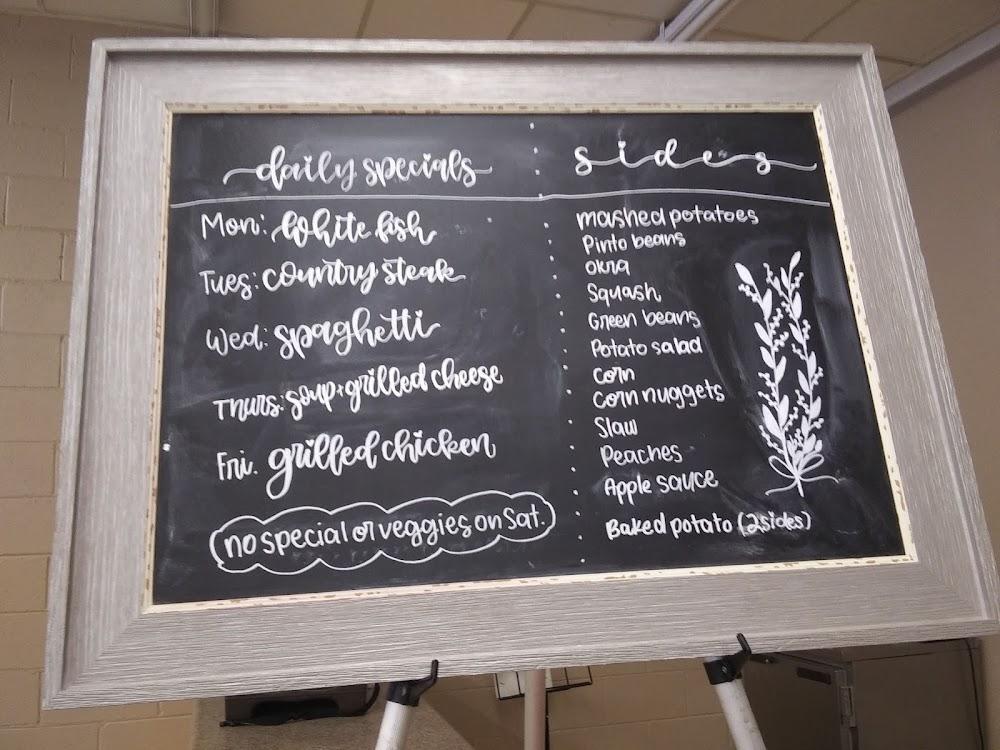 daily specials
Mon: White fish
Tues: country steak
Wed: spaghetti
Thurs: soup + grilled cheese
Fri. grilled chicken
no special or veggies on Sat.
sides
mashed potatoes
Pinto beans
okra
Squash
Green beans
Potato salad
Corn
Corn nuggets
Slaw
Peaches
Apple sauce
Baked potato (2 sides)